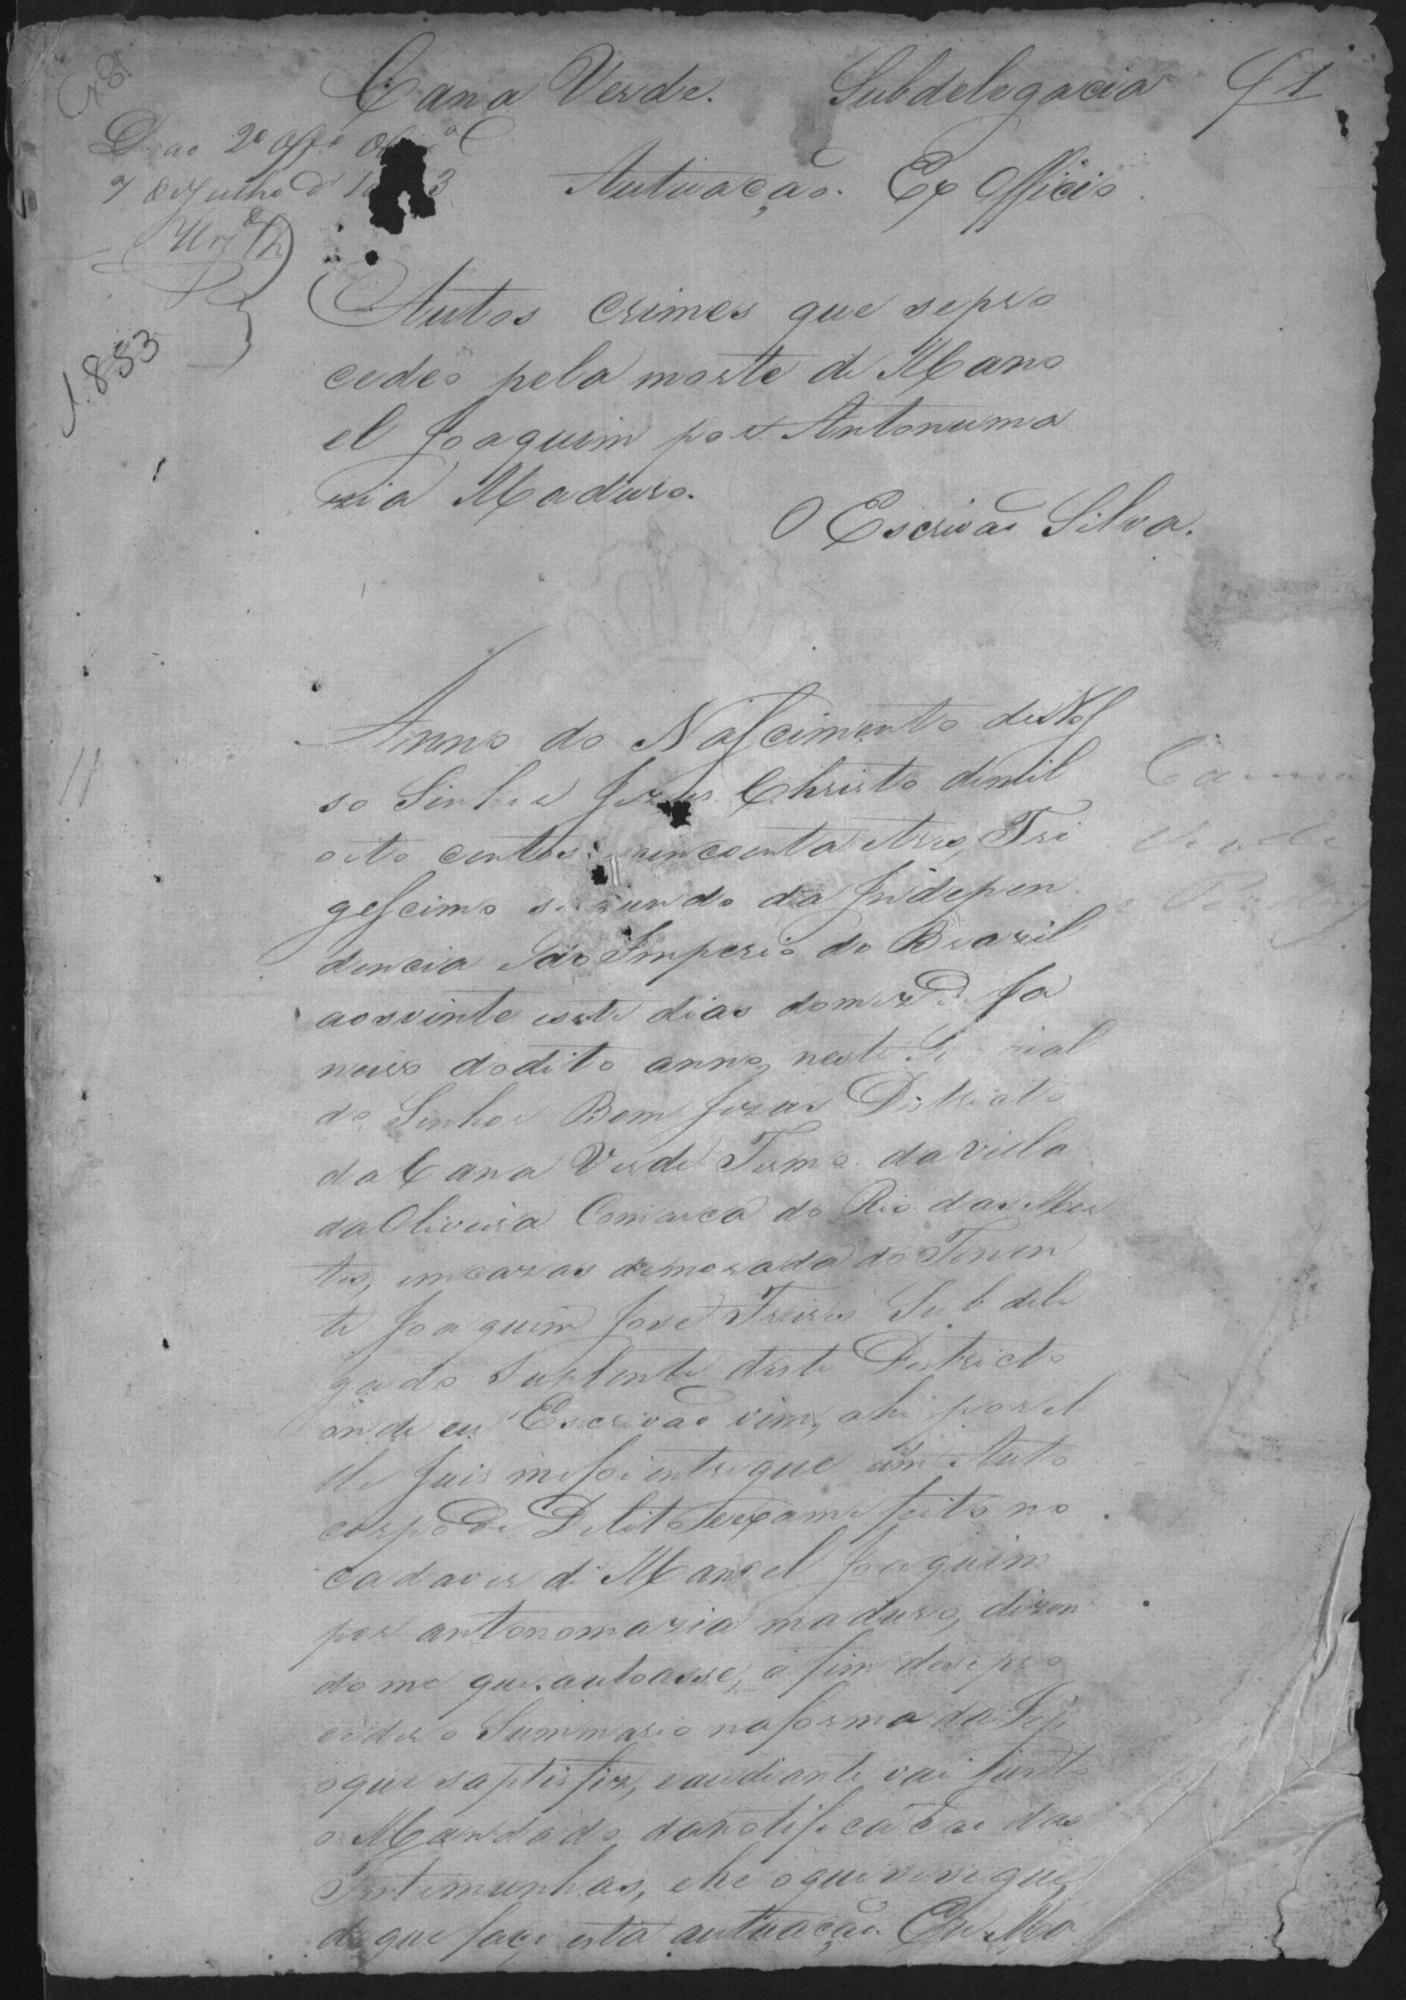 Cana Verde. Subdelegacia f 1
D. ao 2º Off.º
7 de Julho d
Autuação. Ex Officio
1.853
Autos crimes que sepro
cedeo pela morte de Mano
el Joaquim por Antonuma
zia Maduro.
O Escrivão Silva.
Anno do Nascimento de Nos
so Sinhor Jezus Christo de mil
oito centos cincoenta e tres, Tri
gescimo segundo da Indepen
dencia e do Imperio do Brazil
aos vinte e sete dias do mez de Ja
neiro do dito anno, neste
do Senhor Bom Jezus Districto
da Cana Verde Termo da villa
da Oliveira Comarca do Rio das Mor
tes, em cazas de morada do Tenen
te Joaquim Jose Freire Sub dele
gado Suplente deste Districto
onde eu Escrivão vim, ahi por el
le Juis me foi entregue um Auto
corpo de Delito e exame feito no
cadaver de Manoel Joaquim
por antonomazia maduro, dizen
do me que autoasse, a fim de se pro
ceder o Summario na forma da Lei
o que saptisfiz, e audiante vai junto
o Mandado da notificação das
Testemunhas, e he o que
de que faço esta autuação. Eu Ma
Cana
Verde